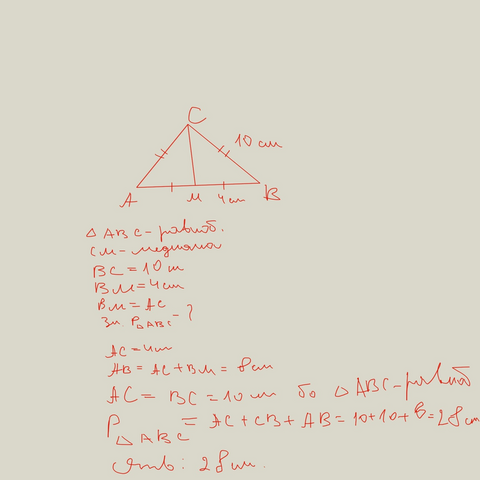 C
10 см
A M 4 см B
△ ABC - рівноб.
CM - медиана
BC = 10 см
BM = 4 см
BM = AC
Зн. P△ABC - ?
AC = 4 см
AB = AC + BM = 8 см
AC = BC = 10 см бо △ ABC - рівноб
P△ABC = AC + CB + AB = 10 + 10 + 8 = 28 см
Отв: 28 см.